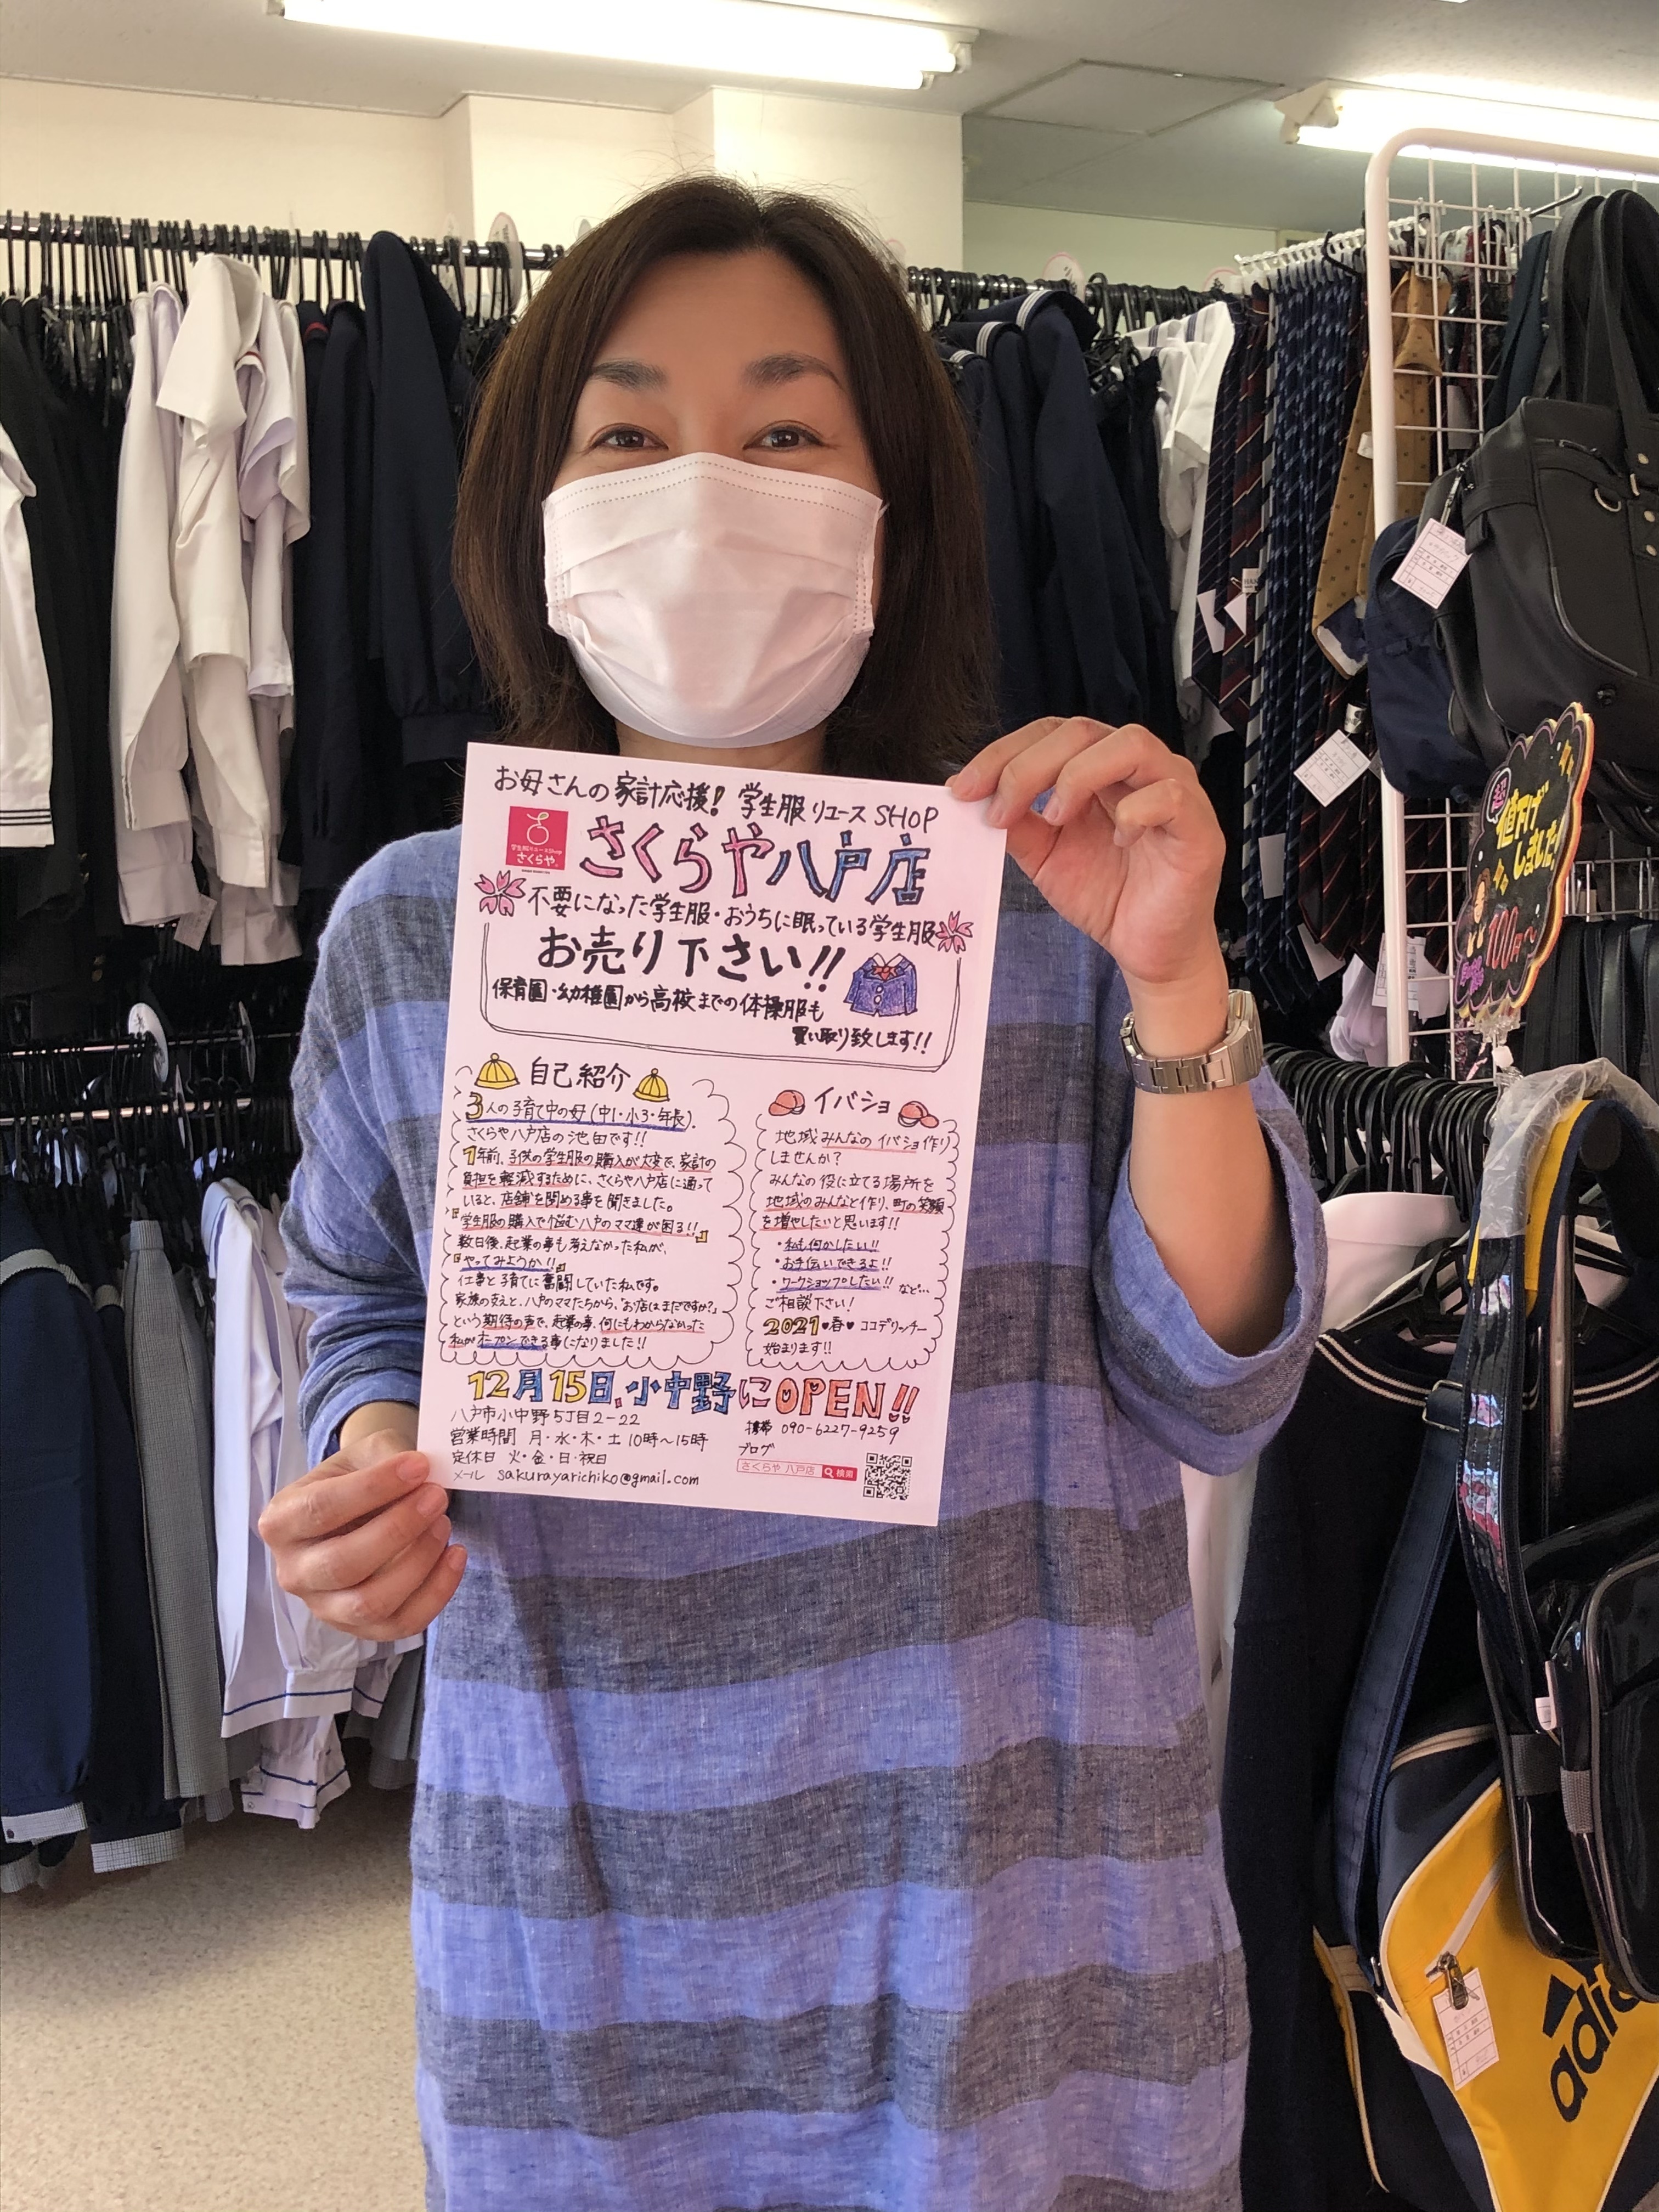 お母さんの家計応援! 学生服リユースSHOP
学生服リユースShop
さくらや
さくらや八戸店
不要になった学生服・おうちに眠っている学生服
お売り下さい!!
保育園・幼稚園から高校までの体操服も
買い取り致します!!
自己紹介
3人の子育て中の母(中1・小3・年長)。
さくらや八戸店の池田です!!
1年前、子供の学生服の購入が大変で、家計の
負担を軽減するために、さくらや八戸店に通って
いると、店舗を閉める事を聞きました。
『学生服の購入で悩む八戸のママ達が困る!!』
数日後、起業の事も考えなかった私が、
『やってみようか!!』
仕事と子育てに奮闘していた私です。
家族の支えと、八戸のママたちから、「お店はまだですか?」
という期待の声で、起業の事、何にもわからなかった
私がオープンできる事になりました!!
イバショ
地域みんなのイバショ作り
しませんか?
みんなの役に立てる場所を
地域のみんなと作り、町の笑顔
を増やしたいと思います!!
・私も何かしたい!!
・お手伝いできるよ!!
・ワークショップしたい!! など…
ご相談下さい!
2021♥春♥ ココデリッチー
始まります!!
12月15日、小中野にOPEN!!
八戸市小中野5丁目2-22
営業時間 月・水・木・土 10時〜15時
定休日 火・金・日・祝日
メール sakurayarichiko@gmail.com
携帯 090-6227-9259
ブログ
さくらや 八戸店 検索
超
値下げ
しました!
100円〜
adid